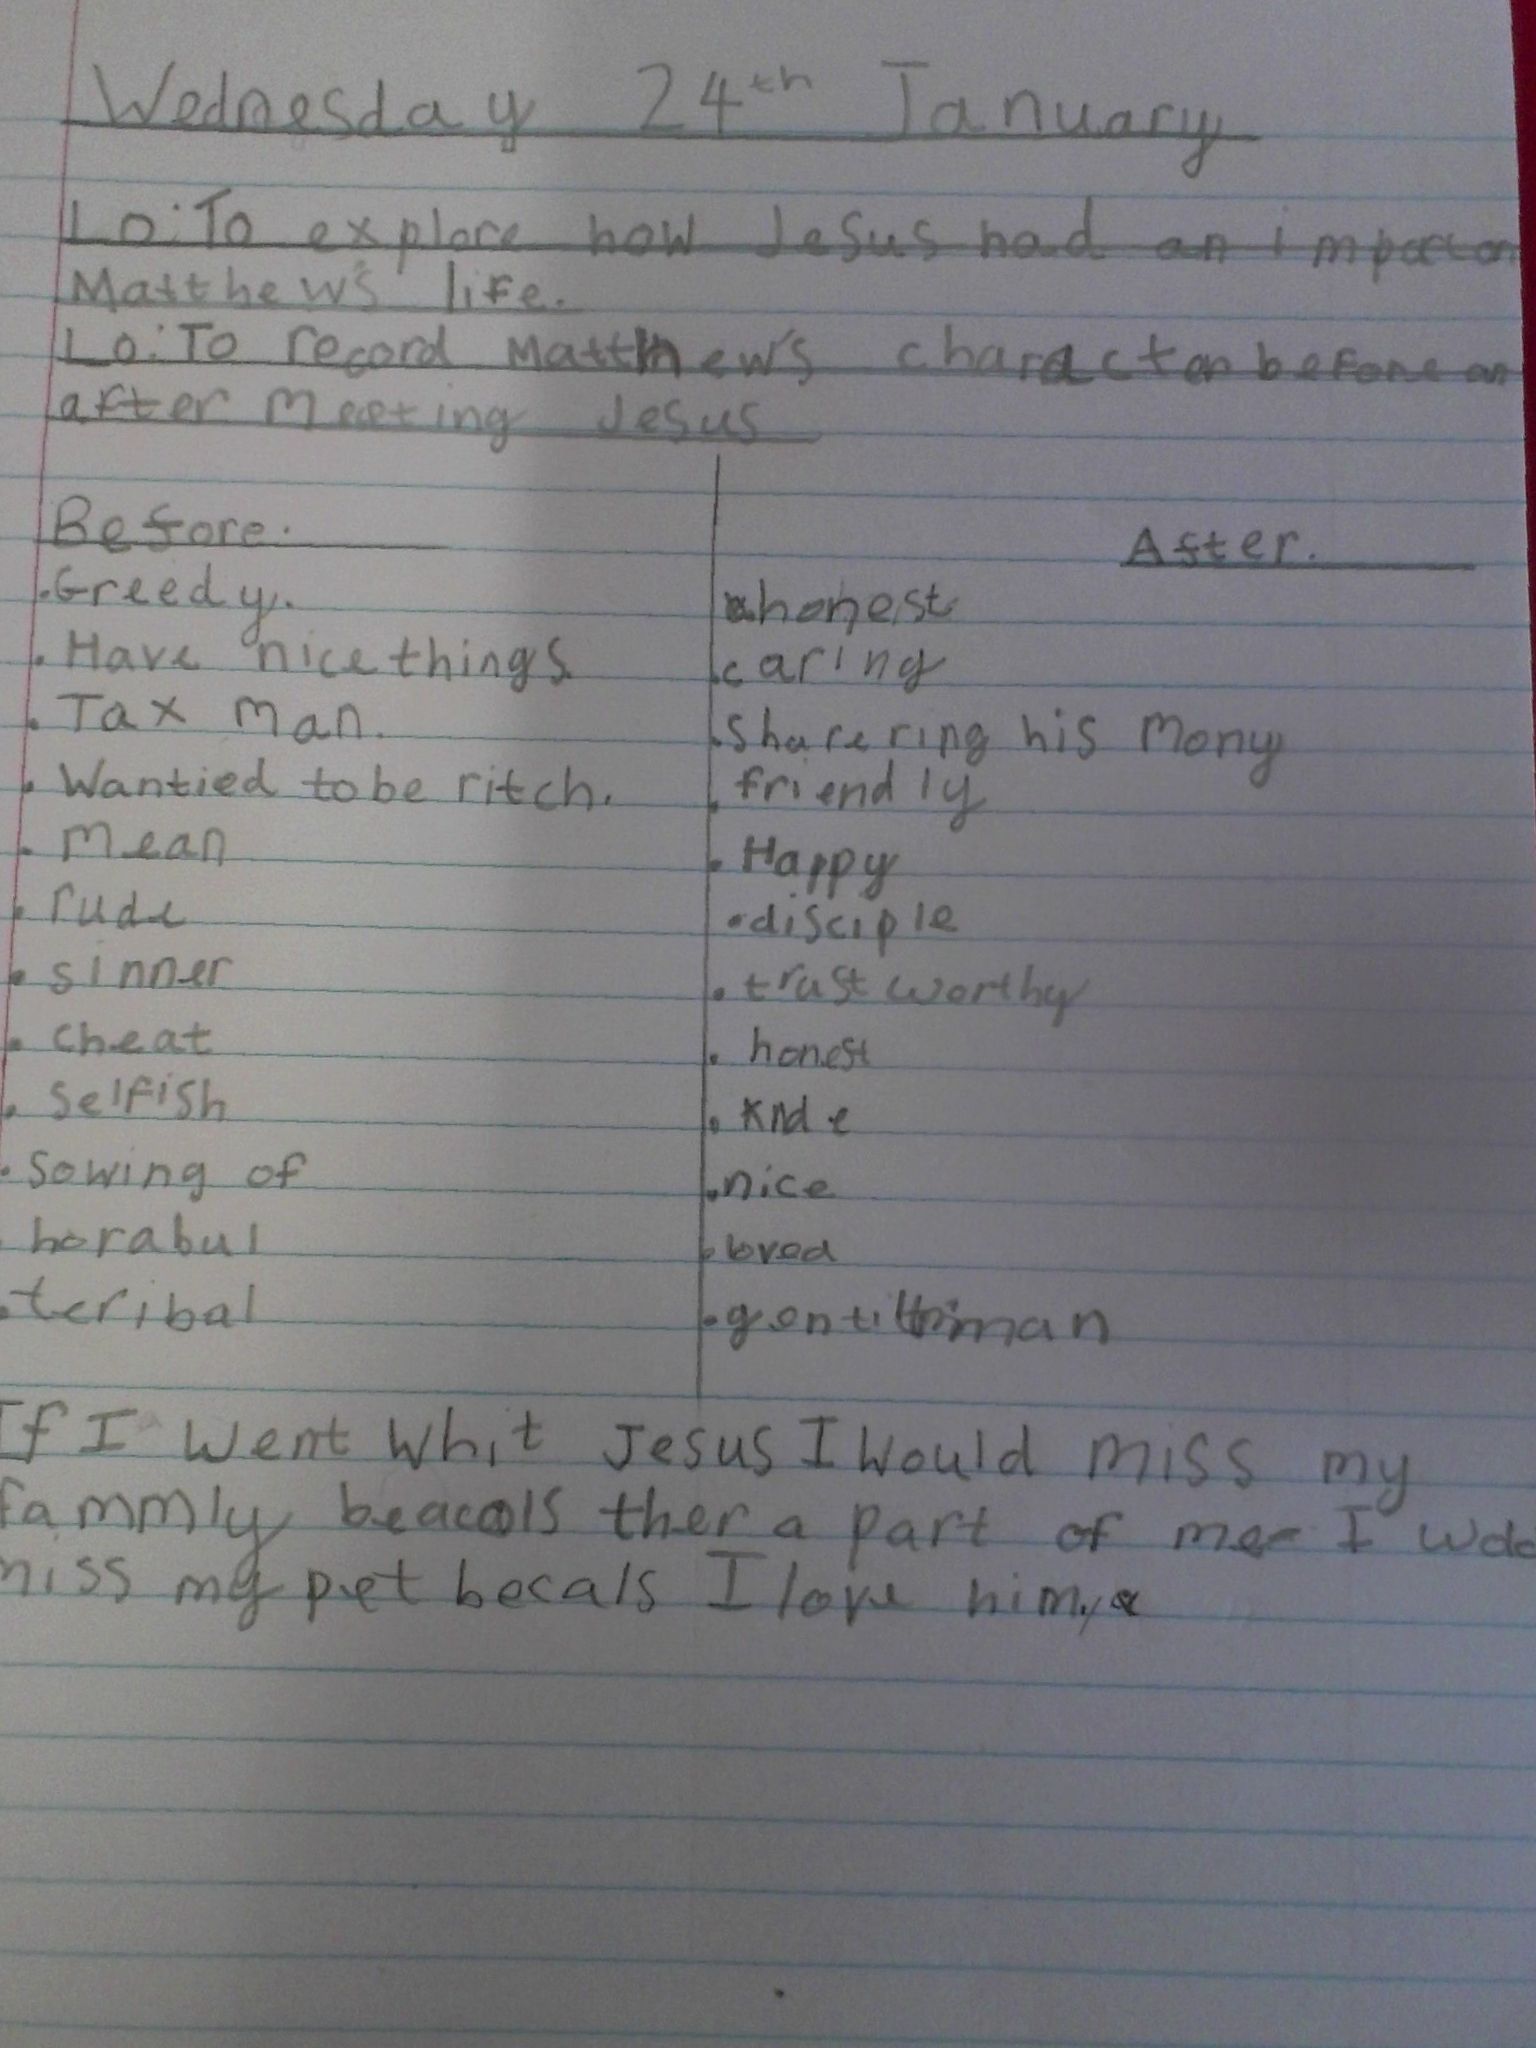 Wednesday 24th January
Lo: To explore how Jesus had an impact on
Matthew's life.
Lo: To record Matthew's character before an
after meeting Jesus
Before.
After.
.Greedy.
. Have nice things
. Tax man.
. Wantied to be ritch.
. mean
. rude
. sinner
. cheat
. selfish
. sowing of
. horabul
. teribal
honest
.caring
.sharering his mony
. friendly
. Happy
. disciple
. trust worthy
. honest
. knde
. nice
.
. gentilman
If I went whit Jesus I would miss my
fammly beacols ther a part of me I
miss my pet becals I love him